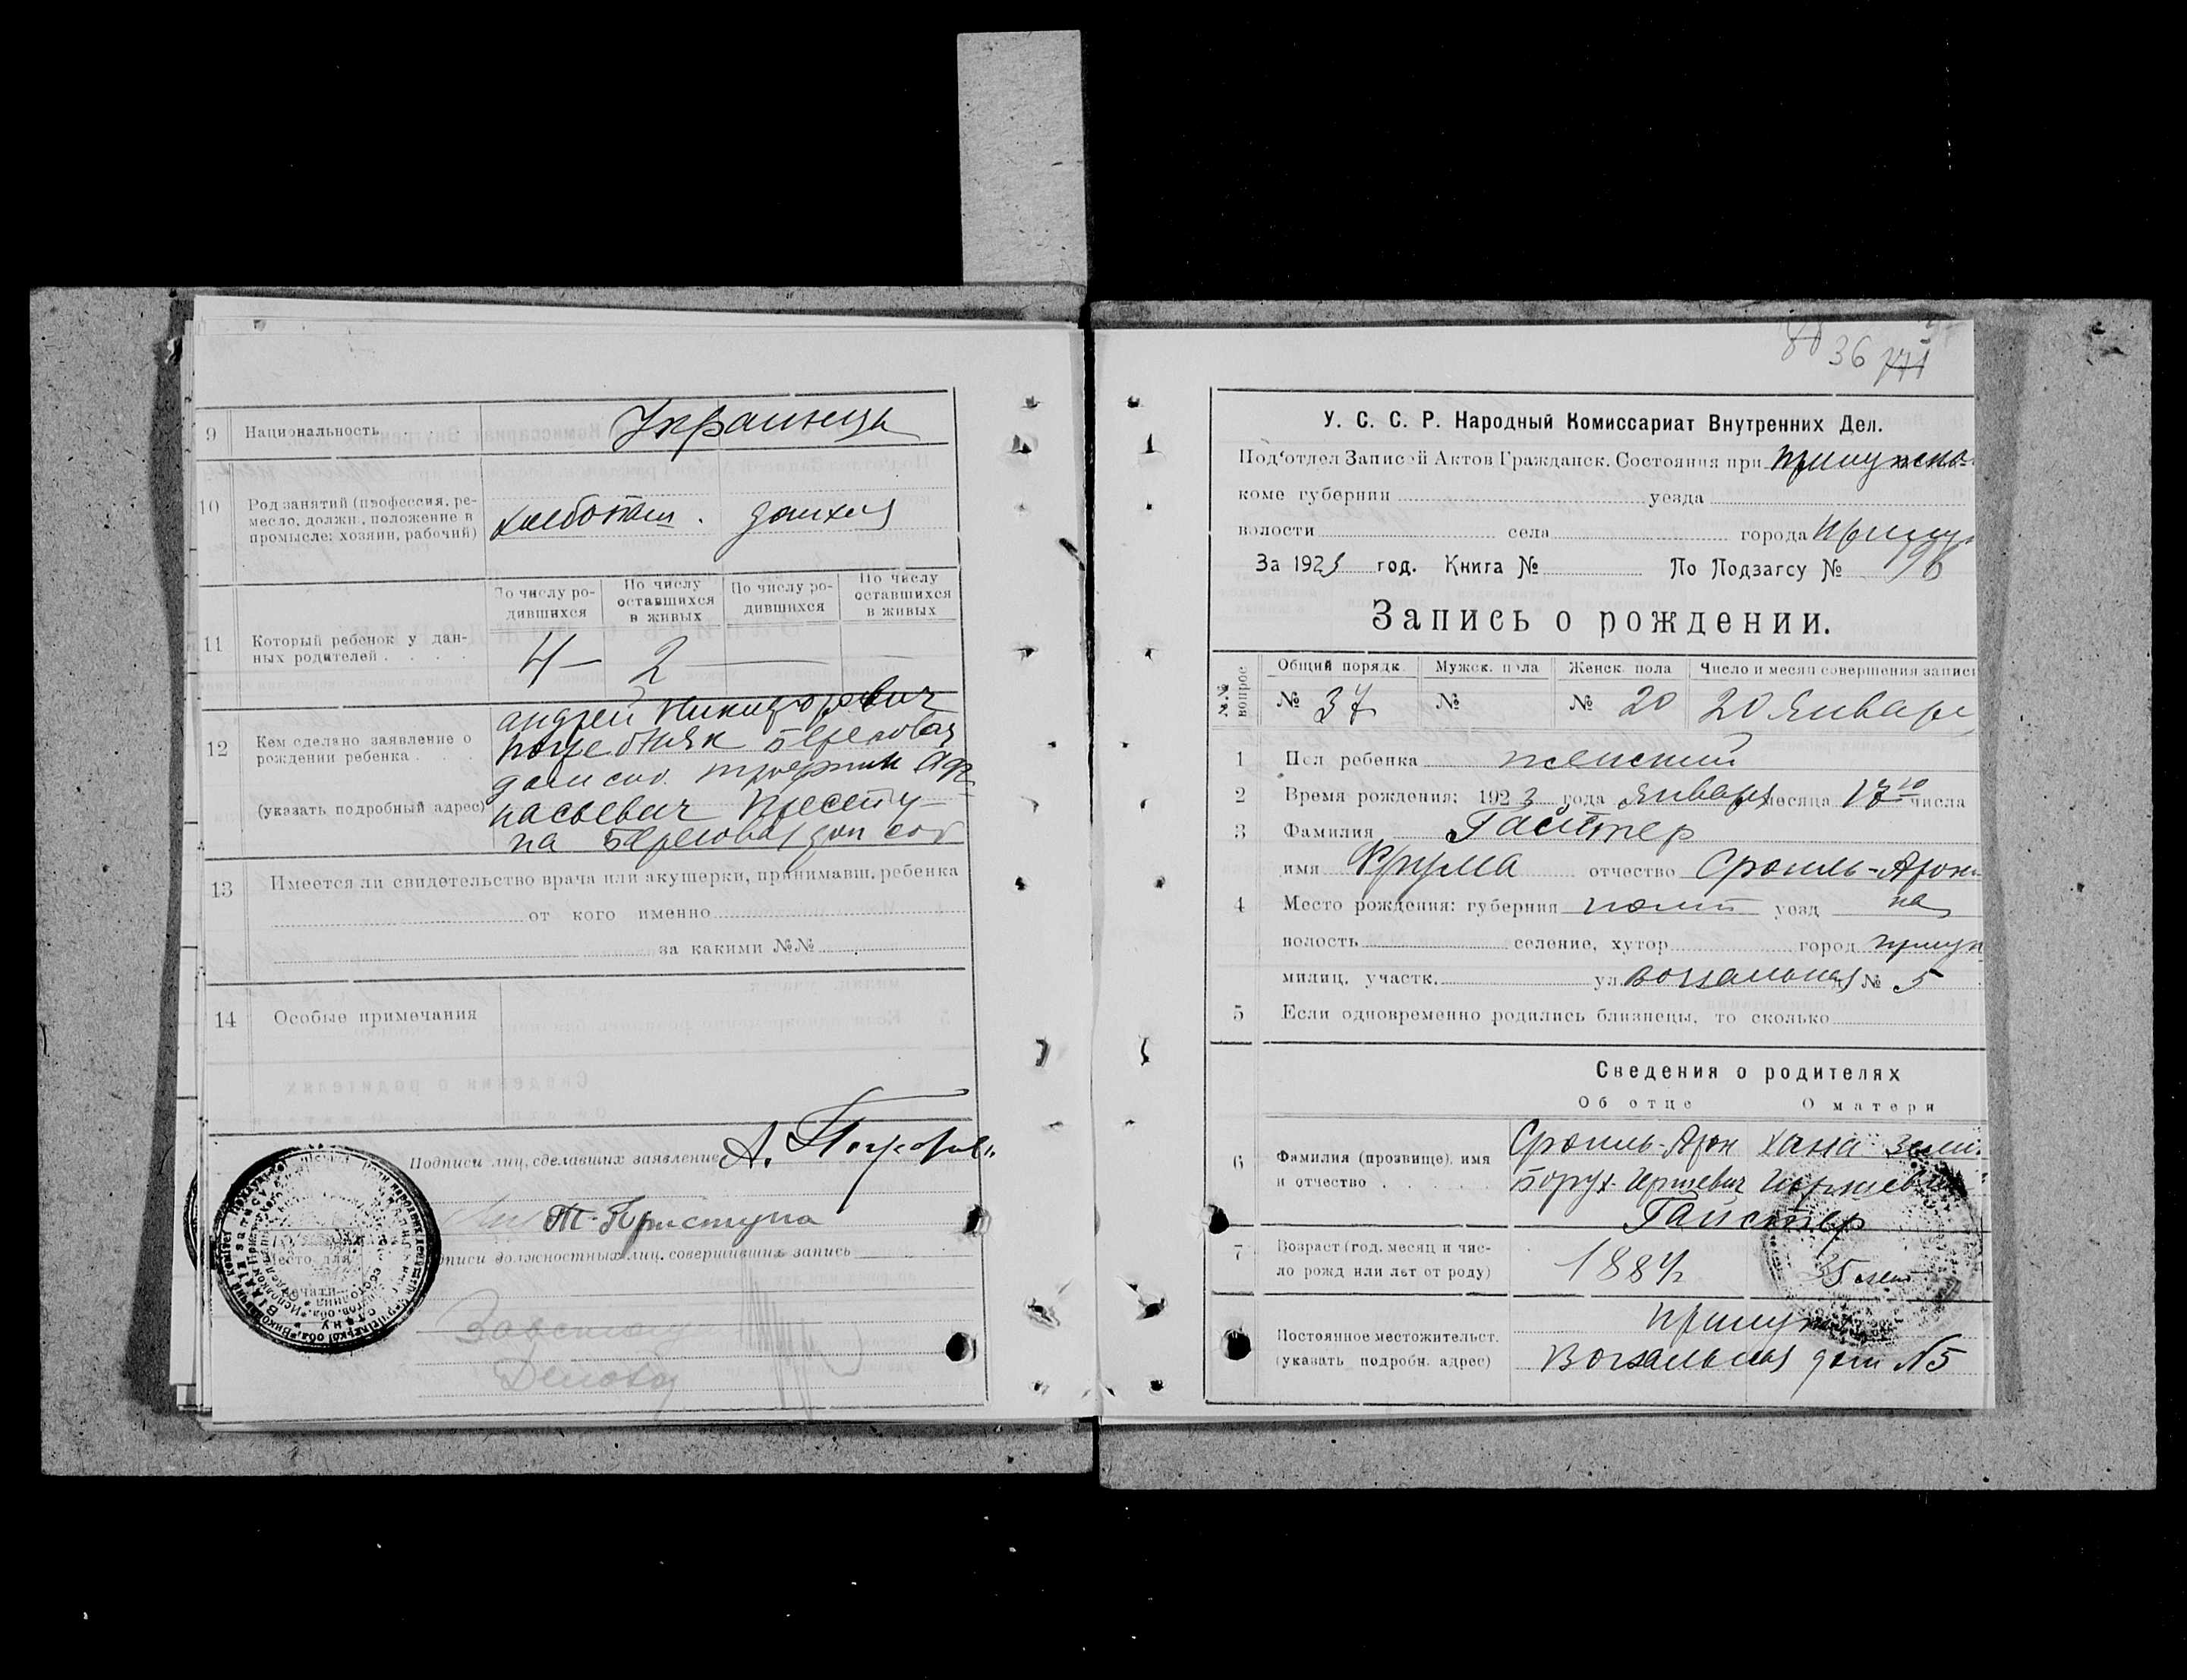 9 Национальность Украинцы
10 Род занятий (профессия, ре-
месло, должн., положение в
промысле: хозяин, рабочий)
хлебопаш. домхоз
По числу ро-
дившихся
По числу
оставшихся
в живых
По числу ро-
дившихся
По числу
оставшихся
в живых
11 Который ребенок у дан-
ных родителей . . . .
4 — 2 — —
12 Кем сделано заявление о
рождении ребенка . . .
(указать подробный адрес)
андрей Никифорович
Береговая
дом соб. Афа-
насьевич Присту-
па Береговая дом соб
13 Имеется ли свидетельство врача или акушерки, принимавш. ребенка
от кого именно
за какими №№
14 Особые примечания
Подписи лиц, сделавших заявление А.
Т. Приступа
Подписи должностных лиц, совершивших запись
Место для
печати
36
У. С. С. Р. Народный Комиссариат Внутренних Дел.
Под'отдел Записей Актов Гражданск. Состояния при Прилукско-
коме губернии уезда
волости села города Прилук
За 1923 год. Книга № По Подзагсу №
Запись о рождении.
№№ вопрос
Общий порядк. Мужск. пола Женск. пола Число и месяц совершения записи
№ 37 № № 20 20 Января
1 Пол ребенка женский
2 Время рождения: 1923 года Января месяца 17го числа
3 Фамилия Гайстер
имя Фрума отчество Сроиль-Арон
на
4 Место рождения: губерния полт уезд
волость селение, хутор город прилук
милиц. участк. ул. Вокзальная № 5
5 Если одновременно родились близнецы, то сколько
Сведения о родителях
Об отце О матери
6 Фамилия (прозвище), имя
и отчество . . . . .
Сроиль-Арон Хана
Борух-Гершевич
Гайстер
7 Возраст (год, месяц и чис-
ло рожд или лет от роду)
1887 35 лет
Постоянное местожительст.
(указать подробн. адрес)
Прилуки
Вокзальная дом №5